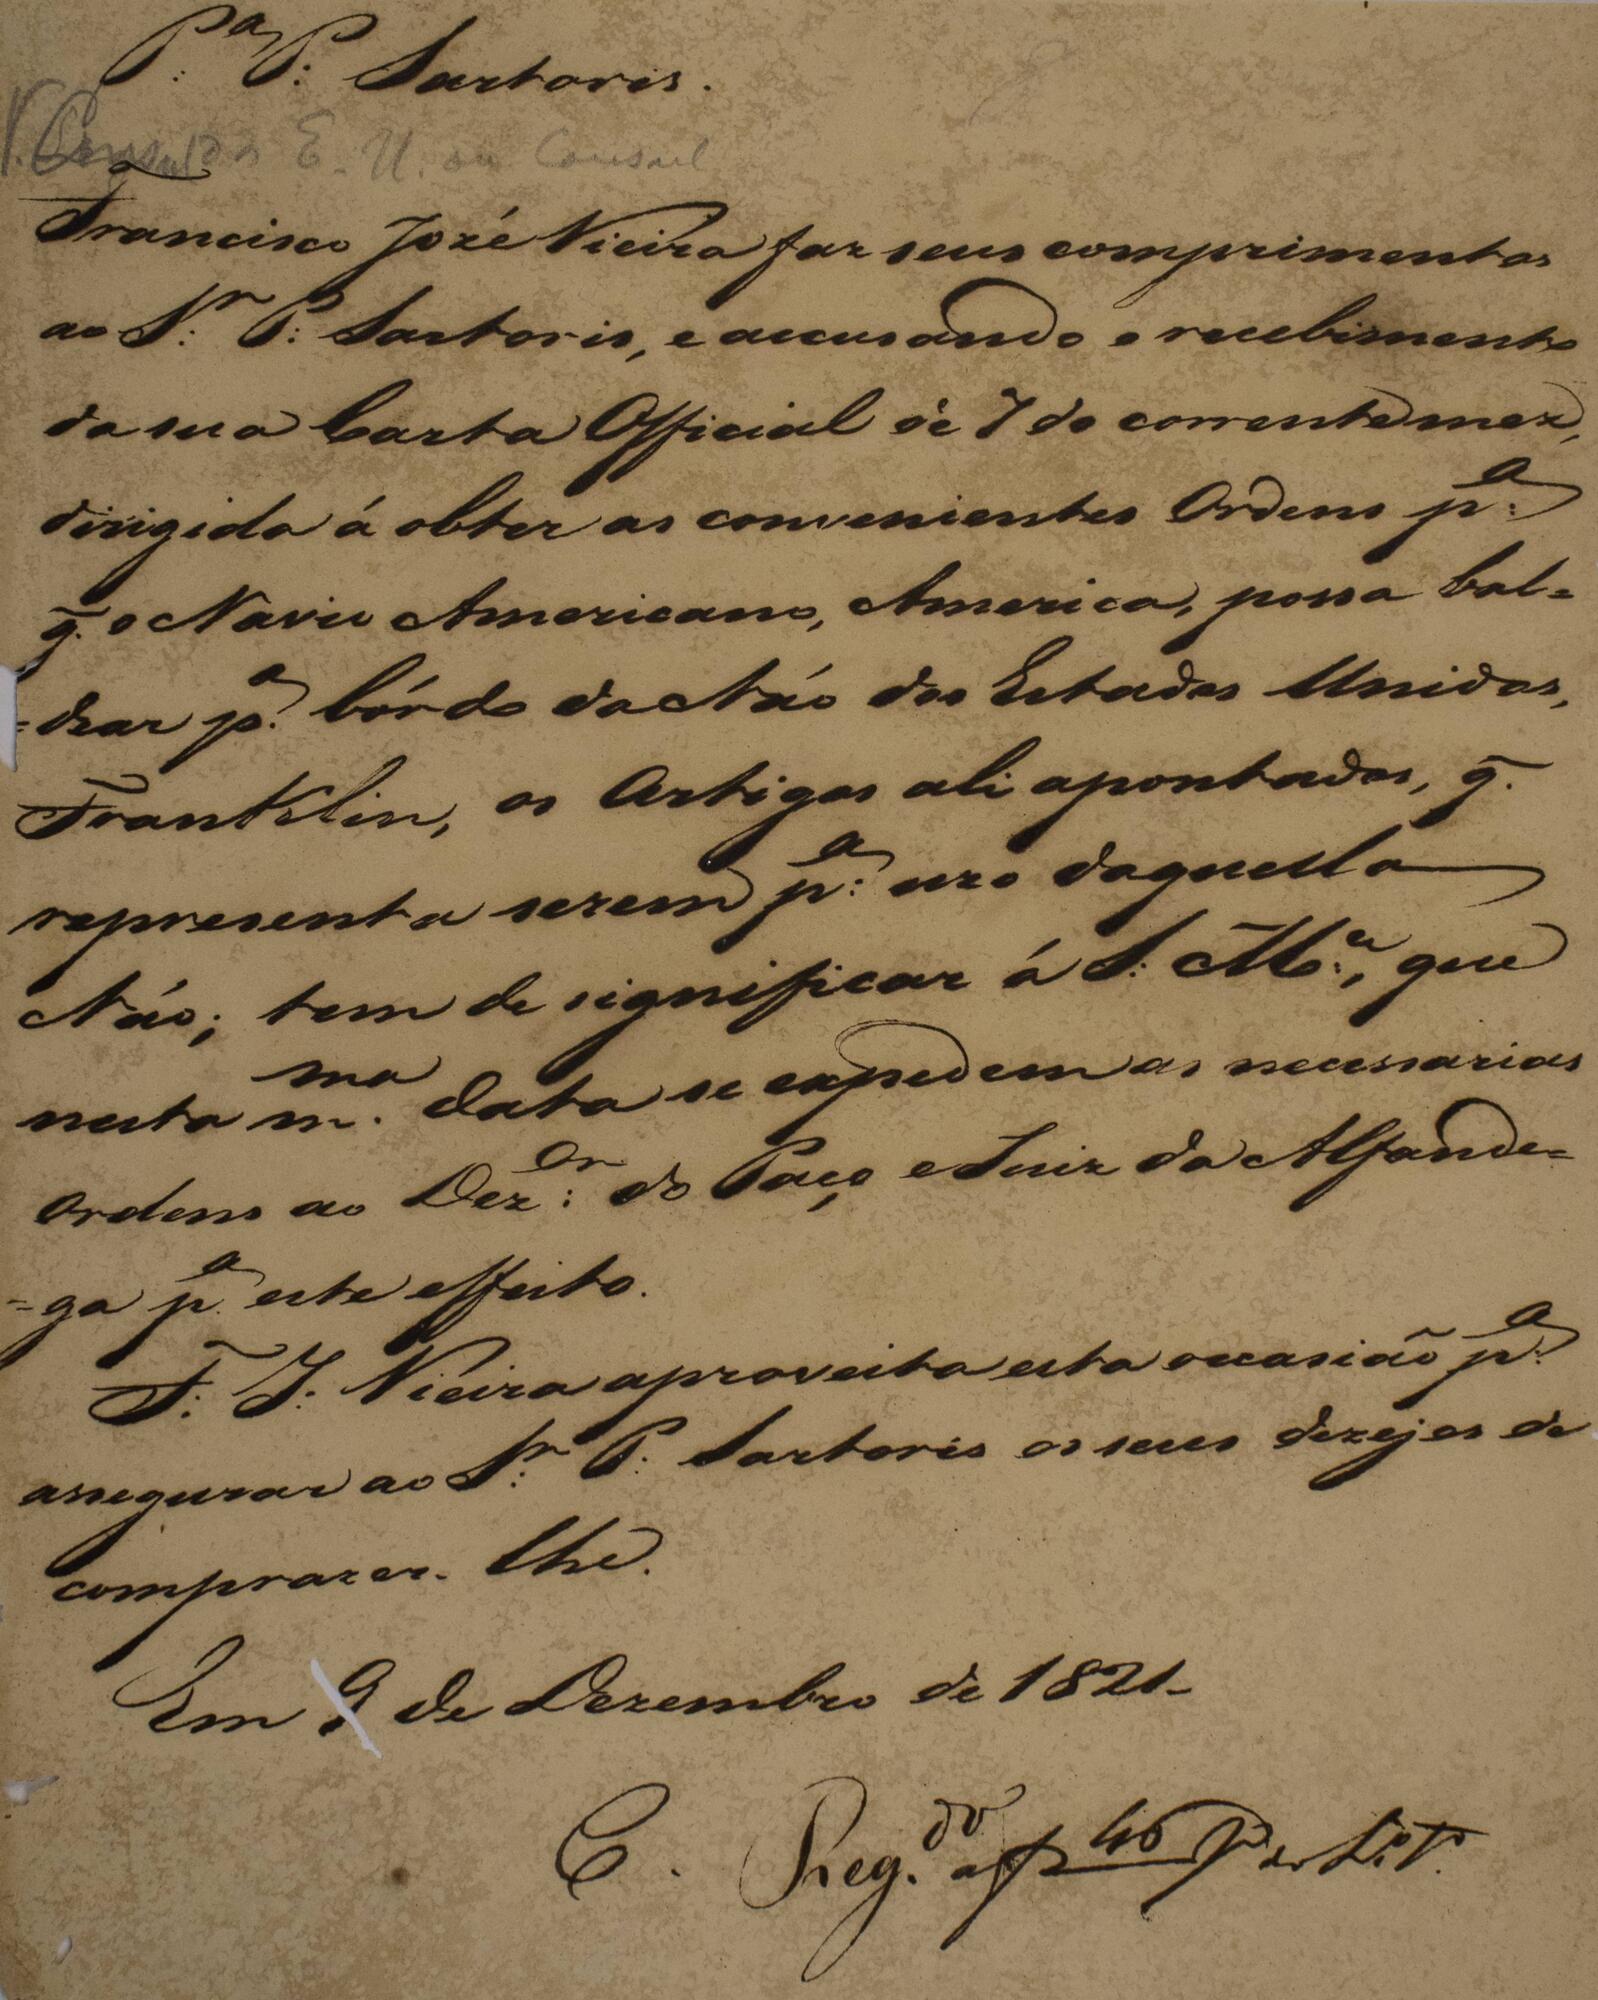 P.ª P: Sartoris.
V. Consul dos E. U. ou Consul
Francisco Jozé Vieira faz seus comprimentos
ao S.r P: Sartoris, e accusando o recebimento
da sua Carta Official de 7 do corrente mez,
dirigida á obter as convenientes Ordens p.ª
q̃. o Navio Americano, America, possa bal=
=dear p.ª bórdo da Náo dos Estados Unidos,
Franklin, os Artigos ali apontados, q̃.
representa serem p.ª uzo daquella
Náo; tem de significar á S: M.ce, que
nesta m.ma Data se expedem as necessarias
Ordens ao Dez.or do Paço e Juiz da Alfande=
=ga p.ª este effeito.
F: J: Vieira aproveita esta occasião p.ª
assegurar ao S.r P: Sartoris os seus dezejos de
comprazer-lhe.
Em 9 de Dezembro de 1821-
C. Reg.do a f 46